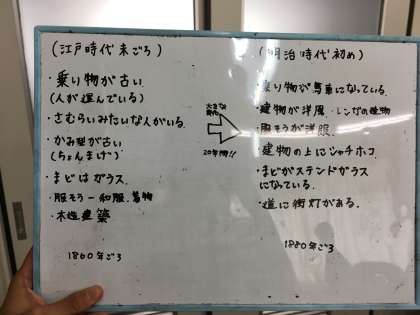 (江戸時代末ごろ)
・乗り物が古い
(人が運んでいる)
・さむらいみたいな人がいる.
・かみ型が古い
(ちょんまげ)
・まどはガラス.
・服そう-和服.着物
・木造建築
1860年ごろ
大きな
20年間!!
(明治時代初め)
・乗り物が馬車になっている.
・建物が洋風・レンガの建物
・服そうが洋服.
・建物の上にシャチホコ
・まどがステンドガラス
になっている.
・道に街灯がある.
1880年ごろ